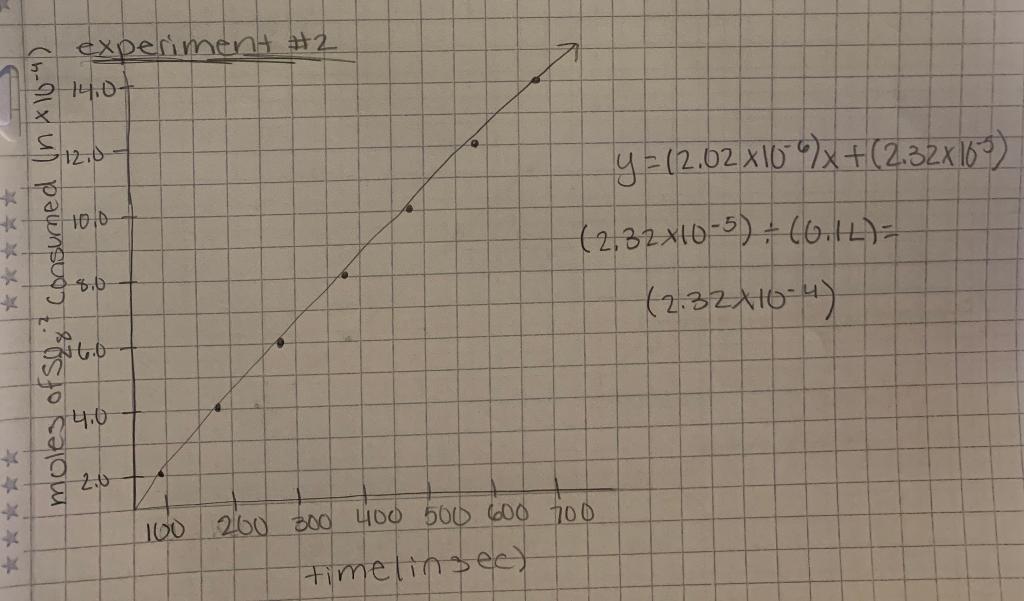 experiment #2
moles of S₂O₈⁻² consumed (n x10⁻⁴)
14.0
12.0
10.0
8.0
6.0
4.0
2.0
100 200 300 400 500 600 700
time(in sec)
y=(2.02x10⁻⁶)x+(2.32x10⁻⁵)
(2.32x10⁻⁵)÷(0.1L)=
(2.32x10⁻⁴)